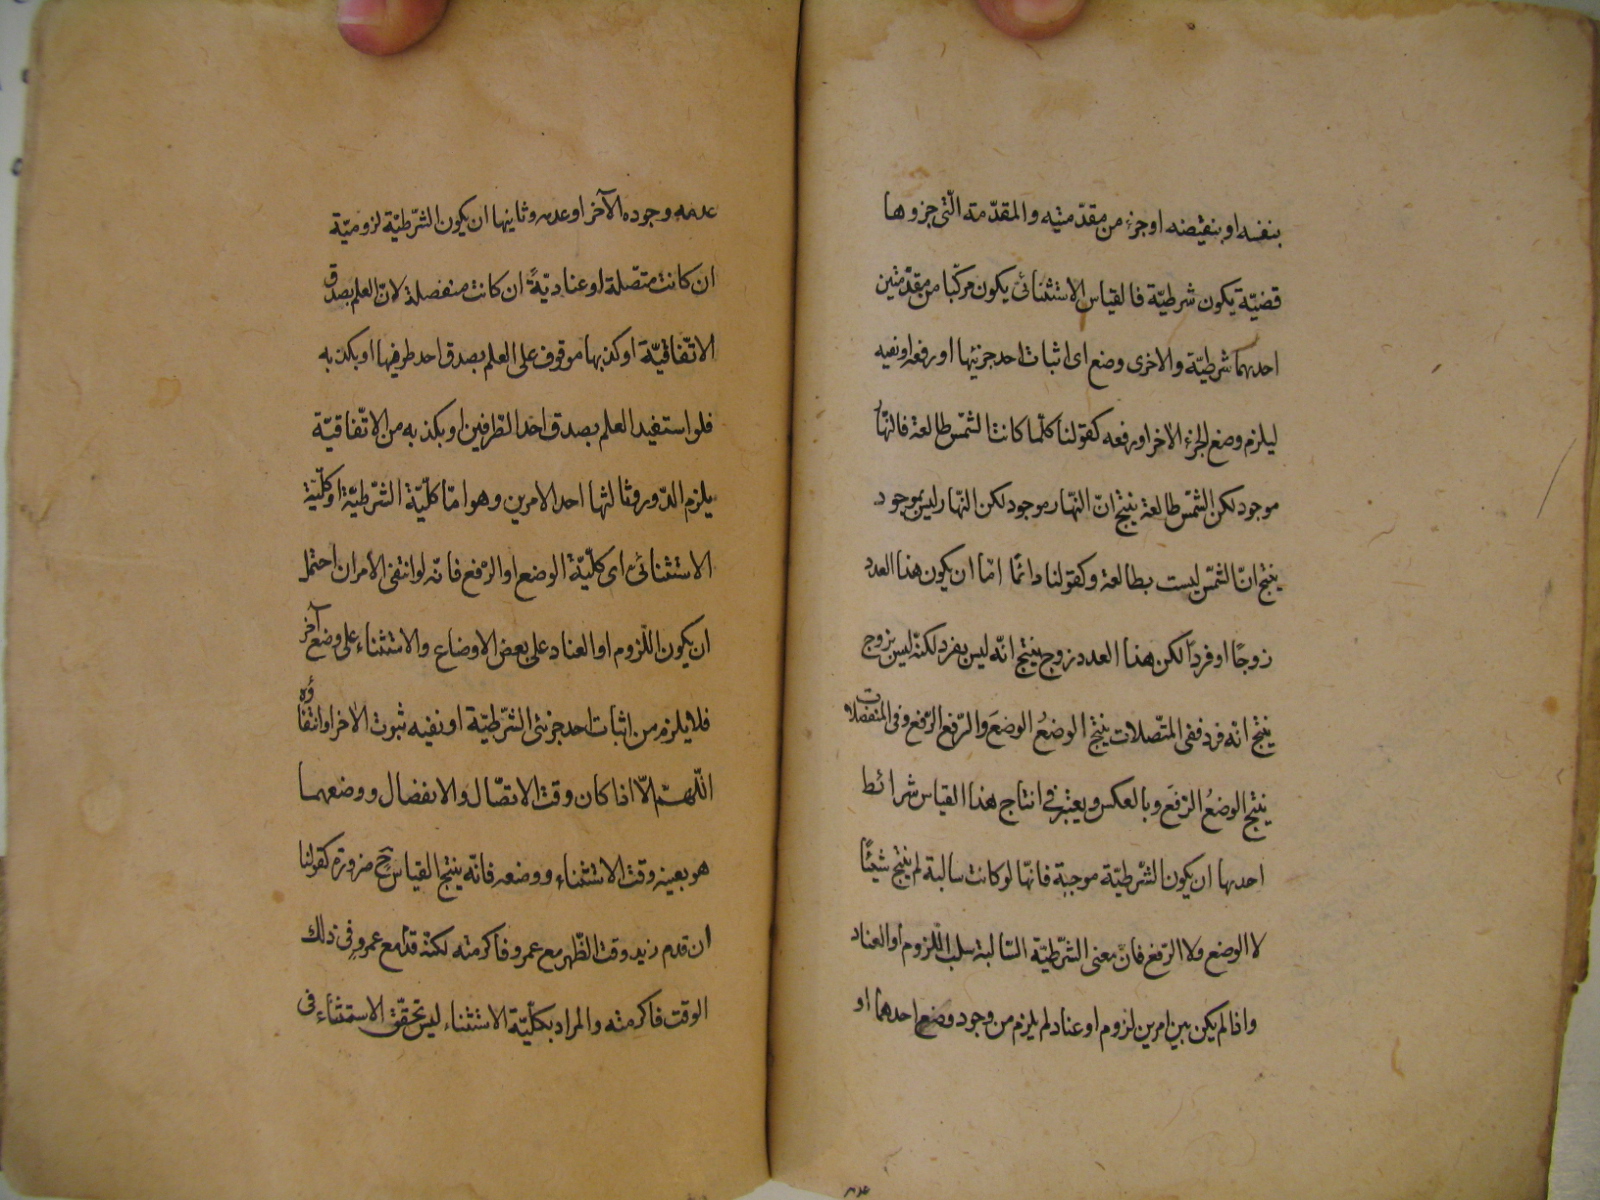 بنفسه او بنقيضه او جزء من مقدمتيه والمقدّمة الّتى جزوها
قضيّة يكون شرطيّة فالقياس الاستثنائى يكون مركّبا من مقدّمتين
احديهما شرطيّة والاخرى وضع اى اثبات احد جزئيها او رفعه او نفيه
ليلزم وضع الجزء الاخر او رفعه كقولنا كلّما كانت الشّمس طالعة فالنّهار
موجود لكن الشّمس طالعة ينتج انّ النّهار موجود لكن النّهار ليس بموجود
ينتج انّ الشّمس ليست بطالعة وكقولنا دائمًا امّا ان يكون هذا العدد
زوجًا او فردًا لكن هذا العدد زوج ينتج انّه ليس بفرد لكنّه ليس بزوج
ينتج انه فرد ففى المتّصلات ينتج الوضعُ الوضعَ والرّفع الرّفع وفى المنفصلات
ينتج الوضعُ الرّفعَ وبالعكس ويعتبر فى انتاج هذا القياس شرائط
احديها ان يكون الشّرطيّة موجبة فانّها لو كانت سالبة لم ينتج شيئًا
لا الوضع ولا الرّفع فانّ معنى الشّرطيّة السّالبة سلب اللّزوم او العناد
واذا لم يكن بين امرين لزوم او عناد لم يلزم من وجود وضع احدهما او
عدمه
عدمه وجوده الآخر او عدمه وثانيها ان يكون الشّرطيّة لزوميّة
ان كانت متّصلة او عناديّةً ان كانت منفصلة لانّ العلم بصدق
الاتّفاقيّة او كذبها موقوف على العلم بصدق احد طرفيها او بكذبه
فلو استفيد العلم بصدق احد الطّرفين او بكذبه من الاتّفاقيّة
يلزم الدّور وثالثها احد الامرين وهو امّا كلّيّة الشّرطيّة او كلّيّة
الاستثنائى اى كلّيّة الوضع او الرّفع فانّه لو انتفى الأمران احتمل
ان يكون اللّزوم او العناد على بعض الاوضاع والاستثناء على وضع آخر
فلا يلزم من اثبات احد جزئى الشّرطيّة او نفيه ثبوت الاخر او انتفاؤه
اللّهمّ الّا اذا كان وقت الاتصّال والانفصال ووضعهما
هو بعينه وقت الاستثناء ووضعه فانّه ينتج القياس ح ضرورة كقولنا
ان قدم زيد وقت الظّهر مع عمرو فاكرمته لكنّه قدم مع عمرو فى ذلك
الوقت فاكرمته والمراد بكلّيّة الاستثناء ليس تحقّق الاستثناء فى